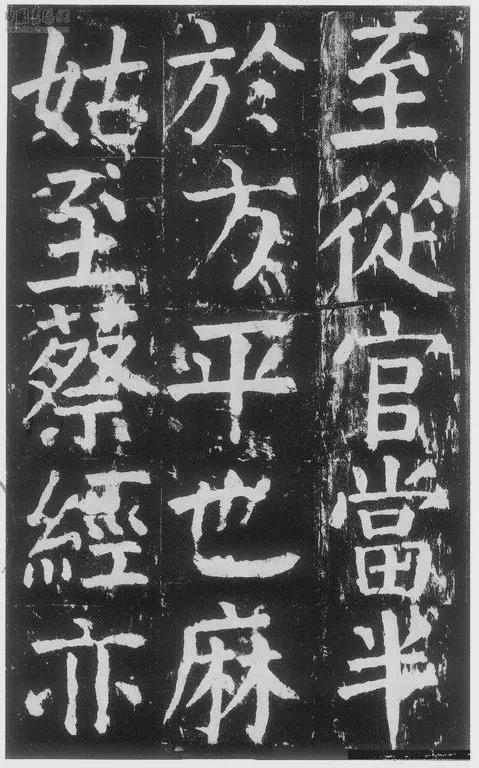 至從官當半
於方平也麻
姑至蔡經亦